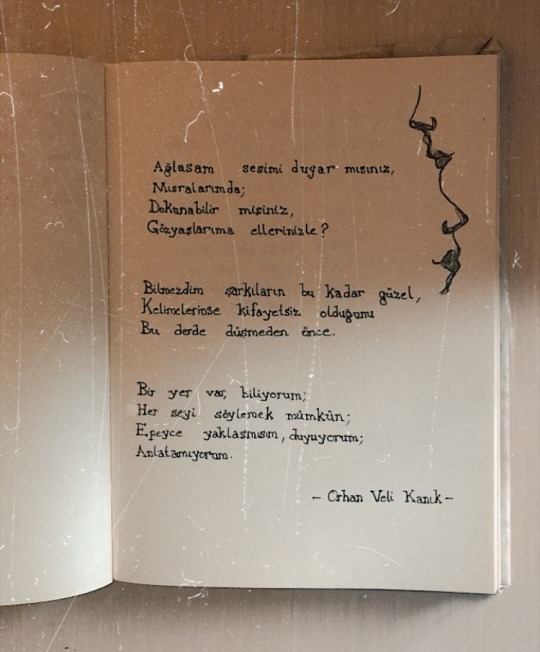 Ağlasam sesimi duyar mısınız,
Mısralarımda;
Dokunabilir misiniz,
Gözyaşlarıma ellerinizle?
Bilmezdim şarkıların bu kadar güzel,
Kelimelerinse kifayetsiz olduğunu
Bu derde düşmeden önce.
Bir yer var, biliyorum;
Her şeyi söylemek mümkün;
Epeyce yaklaşmışım, duyuyorum;
Anlatamıyorum.
- Orhan Veli Kanık -